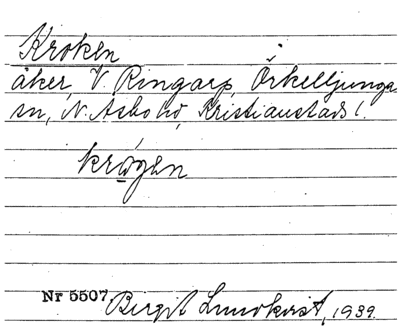 Kroken
åker, V. Ringarp, Örkelljunga
sn, N. Åsbo hd, Kristianstads l.
krøgen
Nr 5507. Birgit Lundkvist, 1939.